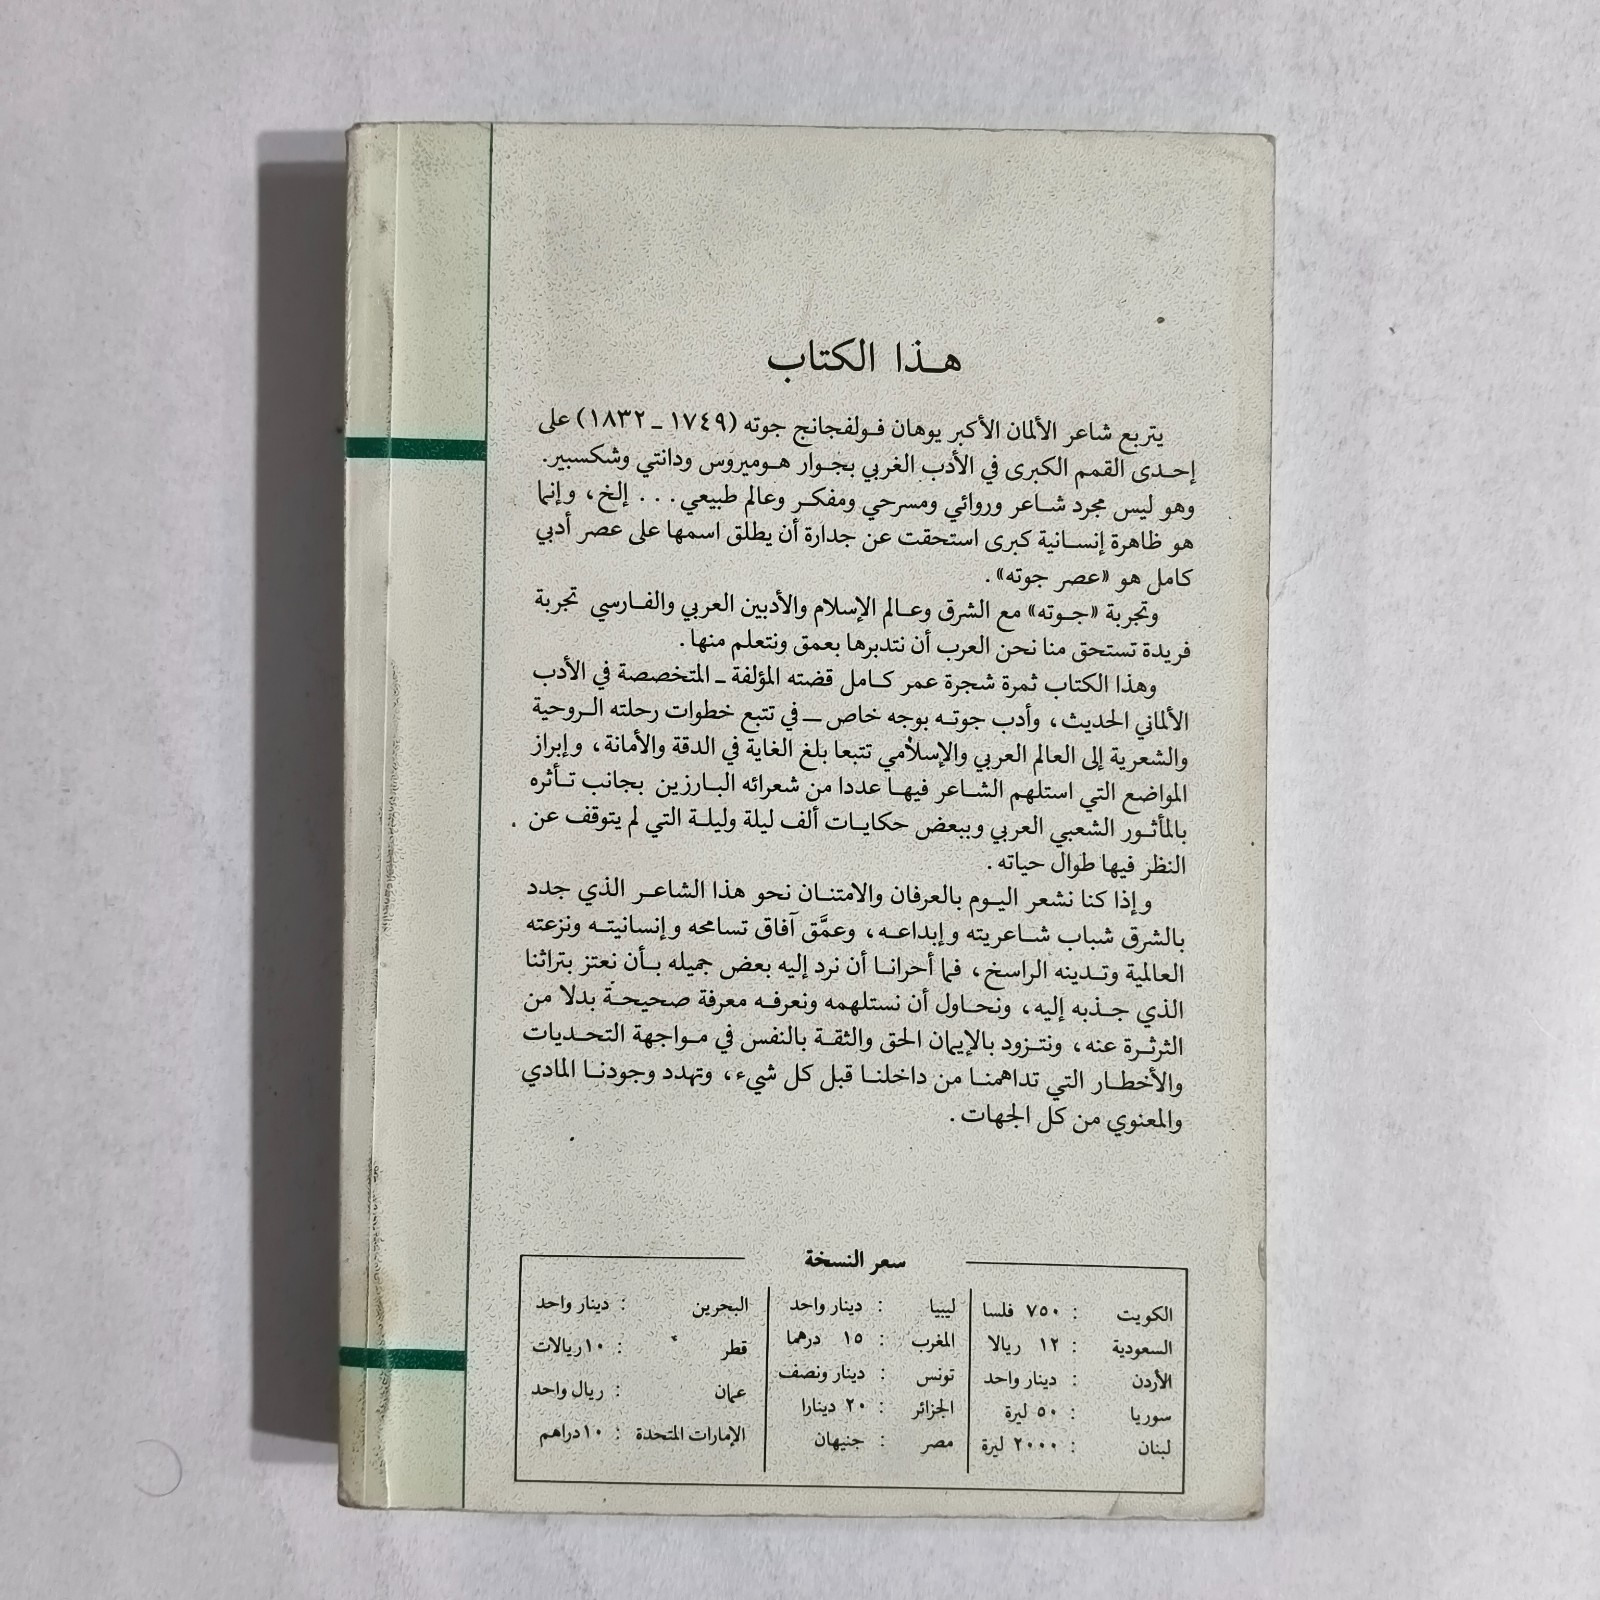 هذا الكتاب
يتربع شاعر الألمان الأكبر يوهان فولفجانج جوته (١٧٤٩ ـ ١٨٣٢) على
إحدى القمم الكبرى في الأدب الغربي بجوار هوميروس ودانتي وشكسبير.
وهو ليس مجرد شاعر وروائي ومسرحي ومفكر وعالم طبيعي... إلخ، وإنما
هو ظاهرة إنسانية كبرى استحقت عن جدارة أن يطلق اسمها على عصر أدبي
كامل هو «عصر جوته».
وتجربة «جوته» مع الشرق وعالم الإسلام والأدبين العربي والفارسي تجربة
فريدة تستحق منا نحن العرب أن نتدبرها بعمق ونتعلم منها.
وهذا الكتاب ثمرة شجرة عمر كامل قضته المؤلفة ـ المتخصصة في الأدب
الألماني الحديث، وأدب جوته بوجه خاص ـ في تتبع خطوات رحلته الروحية
والشعرية إلى العالم العربي والإسلامي تتبعا بلغ الغاية في الدقة والأمانة، وإبراز
المواضع التي استلهم الشاعر فيها عددا من شعرائه البارزين بجانب تأثره
بالمأثور الشعبي العربي وببعض حكايات ألف ليلة وليلة التي لم يتوقف عن
النظر فيها طوال حياته.
وإذا كنا نشعر اليوم بالعرفان والامتنان نحو هذا الشاعر الذي جدد
بالشرق شباب شاعريته وإبداعه، وعمَّق آفاق تسامحه وإنسانيته ونزعته
العالمية وتدينه الراسخ، فما أحرانا أن نرد إليه بعض جميله بأن نعتز بتراثنا
الذي جذبه إليه، ونحاول أن نستلهمه ونعرفه معرفة صحيحة بدلا من
الثرثرة عنه، ونتزود بالإيمان الحق والثقة بالنفس في مواجهة التحديات
والأخطار التي تداهمنا من داخلنا قبل كل شيء، وتهدد وجودنا المادي
والمعنوي من كل الجهات.
سعر النسخة
الكويت : ٧٥٠ فلسا
السعودية : ١٢ ريالا
الأردن : دينار واحد
سوريا : ٥٠ ليرة
لبنان : ٢٠٠٠ ليرة
ليبيا : دينار واحد
المغرب : ١٥ درهما
تونس : دينار ونصف
الجزائر : ٢٠ دينارا
مصر : جنيهان
البحرين : دينار واحد
قطر : ١٠ ريالات
عمان : ريال واحد
الإمارات المتحدة : ١٠ دراهم